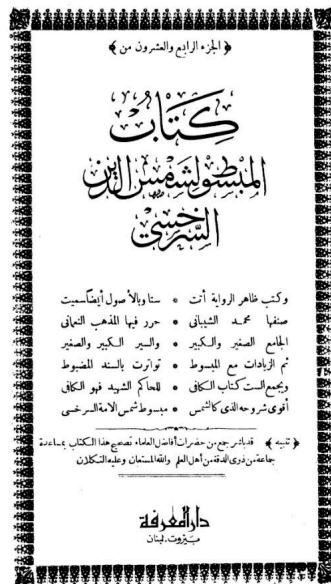 ﴿ الجزء الرابع والعشرون من ﴾
كتاب
المبسوط لشمس الدين
السرخسي
وكتب ظاهر الرواية أتت * ستا وبالأصول أيضا سميت
صنفها محمد الشيبانى * حرر فيها المذهب النعمانى
الجامع الصغير والكبير * والسير الكبير والصغير
ثم الزيادات مع المبسوط * تواترت بالسند المضبوط
ويجمع الست كتاب الكافى * للحاكم الشهيد فهو الكافى
أقوى شروحه الذى كالشمس * مبسوط شمس الامة السرخسى
﴿ تنبيه ﴾ قد باشر جمع من حضرات أفاضل العلماء تصحيح هذا الكتاب بمساعدة
جماعة من ذوى الدقة من أهل العلم والله المستعان وعليه التكلان
دار المعرفة
بيروت. لبنان